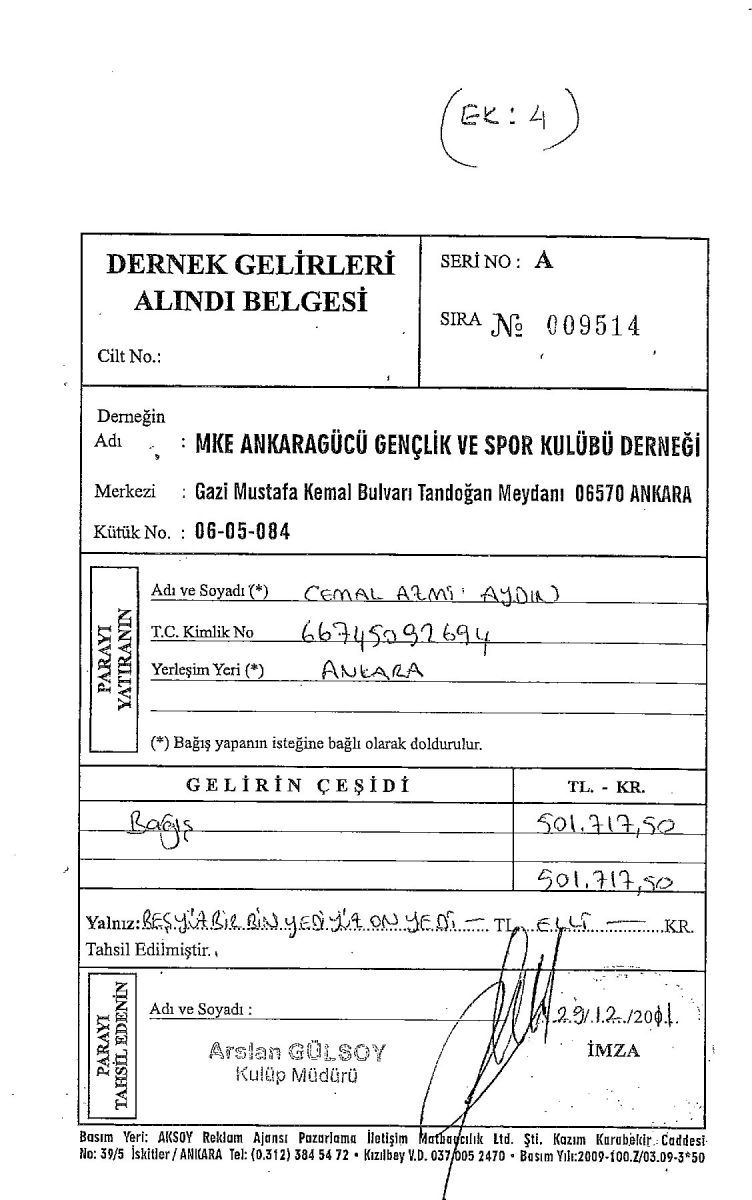 (EK: 4)
DERNEK GELİRLERİ
ALINDI BELGESİ
Cilt No.:
SERİ NO : A
SIRA № 009514
Derneğin
Adı : MKE ANKARAGÜCÜ GENÇLİK VE SPOR KULÜBÜ DERNEĞİ
Merkezi : Gazi Mustafa Kemal Bulvarı Tandoğan Meydanı 06570 ANKARA
Kütük No. : 06-05-084
PARAYI
YATIRANIN
Adı ve Soyadı (*) CEMAL AZMİ AYDIN
T.C. Kimlik No 66745092694
Yerleşim Yeri (*) ANKARA
(*) Bağış yapanın isteğine bağlı olarak doldurulur.
GELİRİN ÇEŞİDİ TL. - KR.
Bağış 501.717,50
501.717,50
Yalnız: BEŞYÜZBİRBİNYEDİYÜZONYEDİ — TL. ELLİ — KR.
Tahsil Edilmiştir.
PARAYI
TAHSİL EDENİN
Adı ve Soyadı :
Arslan GÜLSOY
Kulüp Müdürü
29/12/2011.
İMZA
Basım Yeri: AKSOY Reklam Ajansı Pazarlama İletişim Matbaacılık Ltd. Şti. Kazım Karabekir Caddesi
No: 39/5 İskitler / ANKARA Tel: (0.312) 384 54 72 • Kızılbey V.D. 037 005 2470 • Basım Yılı:2009-100.Z/03.09-3*50